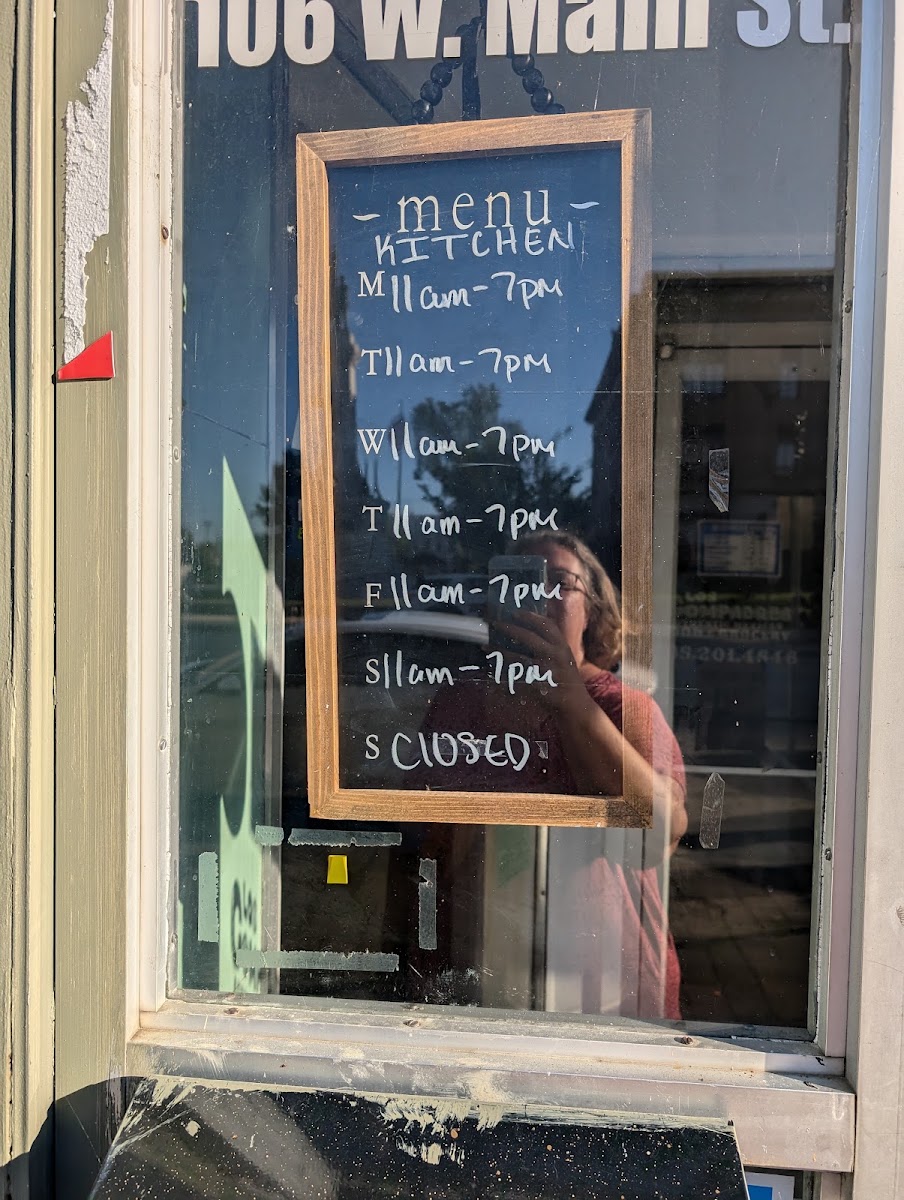 106 W. Main St.
- menu -
KITCHEN
M 11am-7pm
T 11am-7pm
W 11am-7pm
T 11am-7pm
F 11am-7pm
S 11am-7pm
S ClOSED